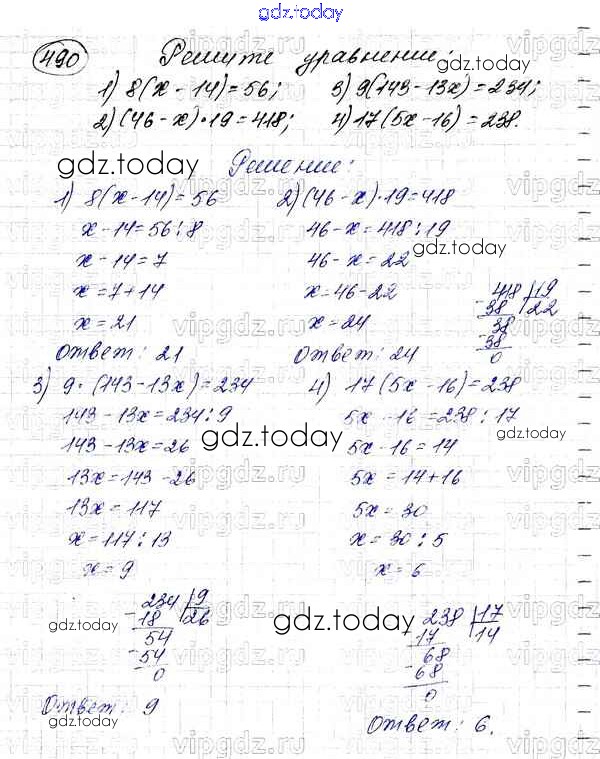 gdz.today
490 Решите уравнение:
1) 8(x - 14) = 56; 3) 9(143 - 13x) = 234;
2) (46 - x) · 19 = 418; 4) 17(5x - 16) = 238.
gdz.today Решение:
1) 8(x - 14) = 56
x - 14 = 56 : 8
x - 14 = 7
x = 7 + 14
x = 21
Ответ: 21
2) (46 - x) · 19 = 418
46 - x = 418 : 19
gdz.today
46 - x = 22
x = 46 - 22
x = 24
418 | 19
- 38 22
38
- 38
0
Ответ: 24
3) 9 · (143 - 13x) = 234
143 - 13x = 234 : 9
143 - 13x = 26
gdz.today
13x = 143 - 26
13x = 117
x = 117 : 13
x = 9
234 | 9
- 18 26
54
- 54
0
Ответ: 9
gdz.today
4) 17(5x - 16) = 238
5x - 16 = 238 : 17
5x - 16 = 14
5x = 14 + 16
5x = 30
x = 30 : 5
x = 6
gdz.today
238 | 17
- 17 14
68
- 68
0
gdz.today
Ответ: 6.
vipgdz.ru